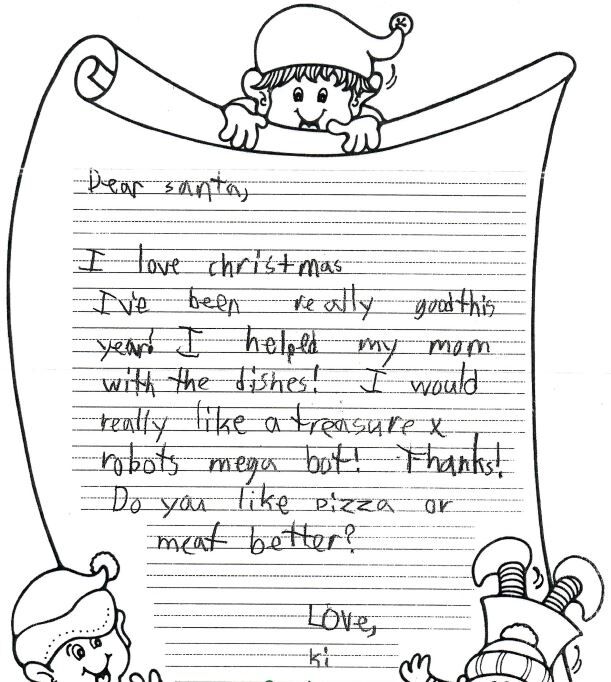 Dear santa,
I love christmas
I've been really good this
year! I helped my mom
with the dishes! I would
really like a treasure x
robots mega bot! Thanks!
Do you like pizza or
meat better?
LOVe,
ki